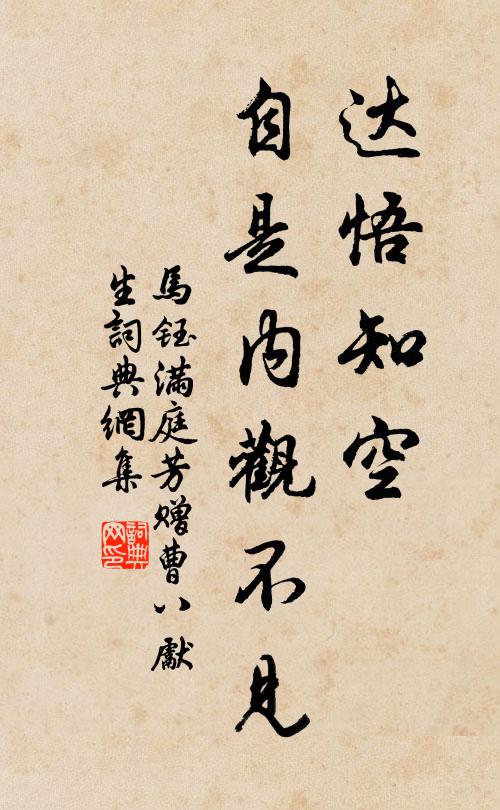 达悟知空
自是内觀不見
馬鈺滿庭芳赠曹八獻
生詞典網集
詞典
网印